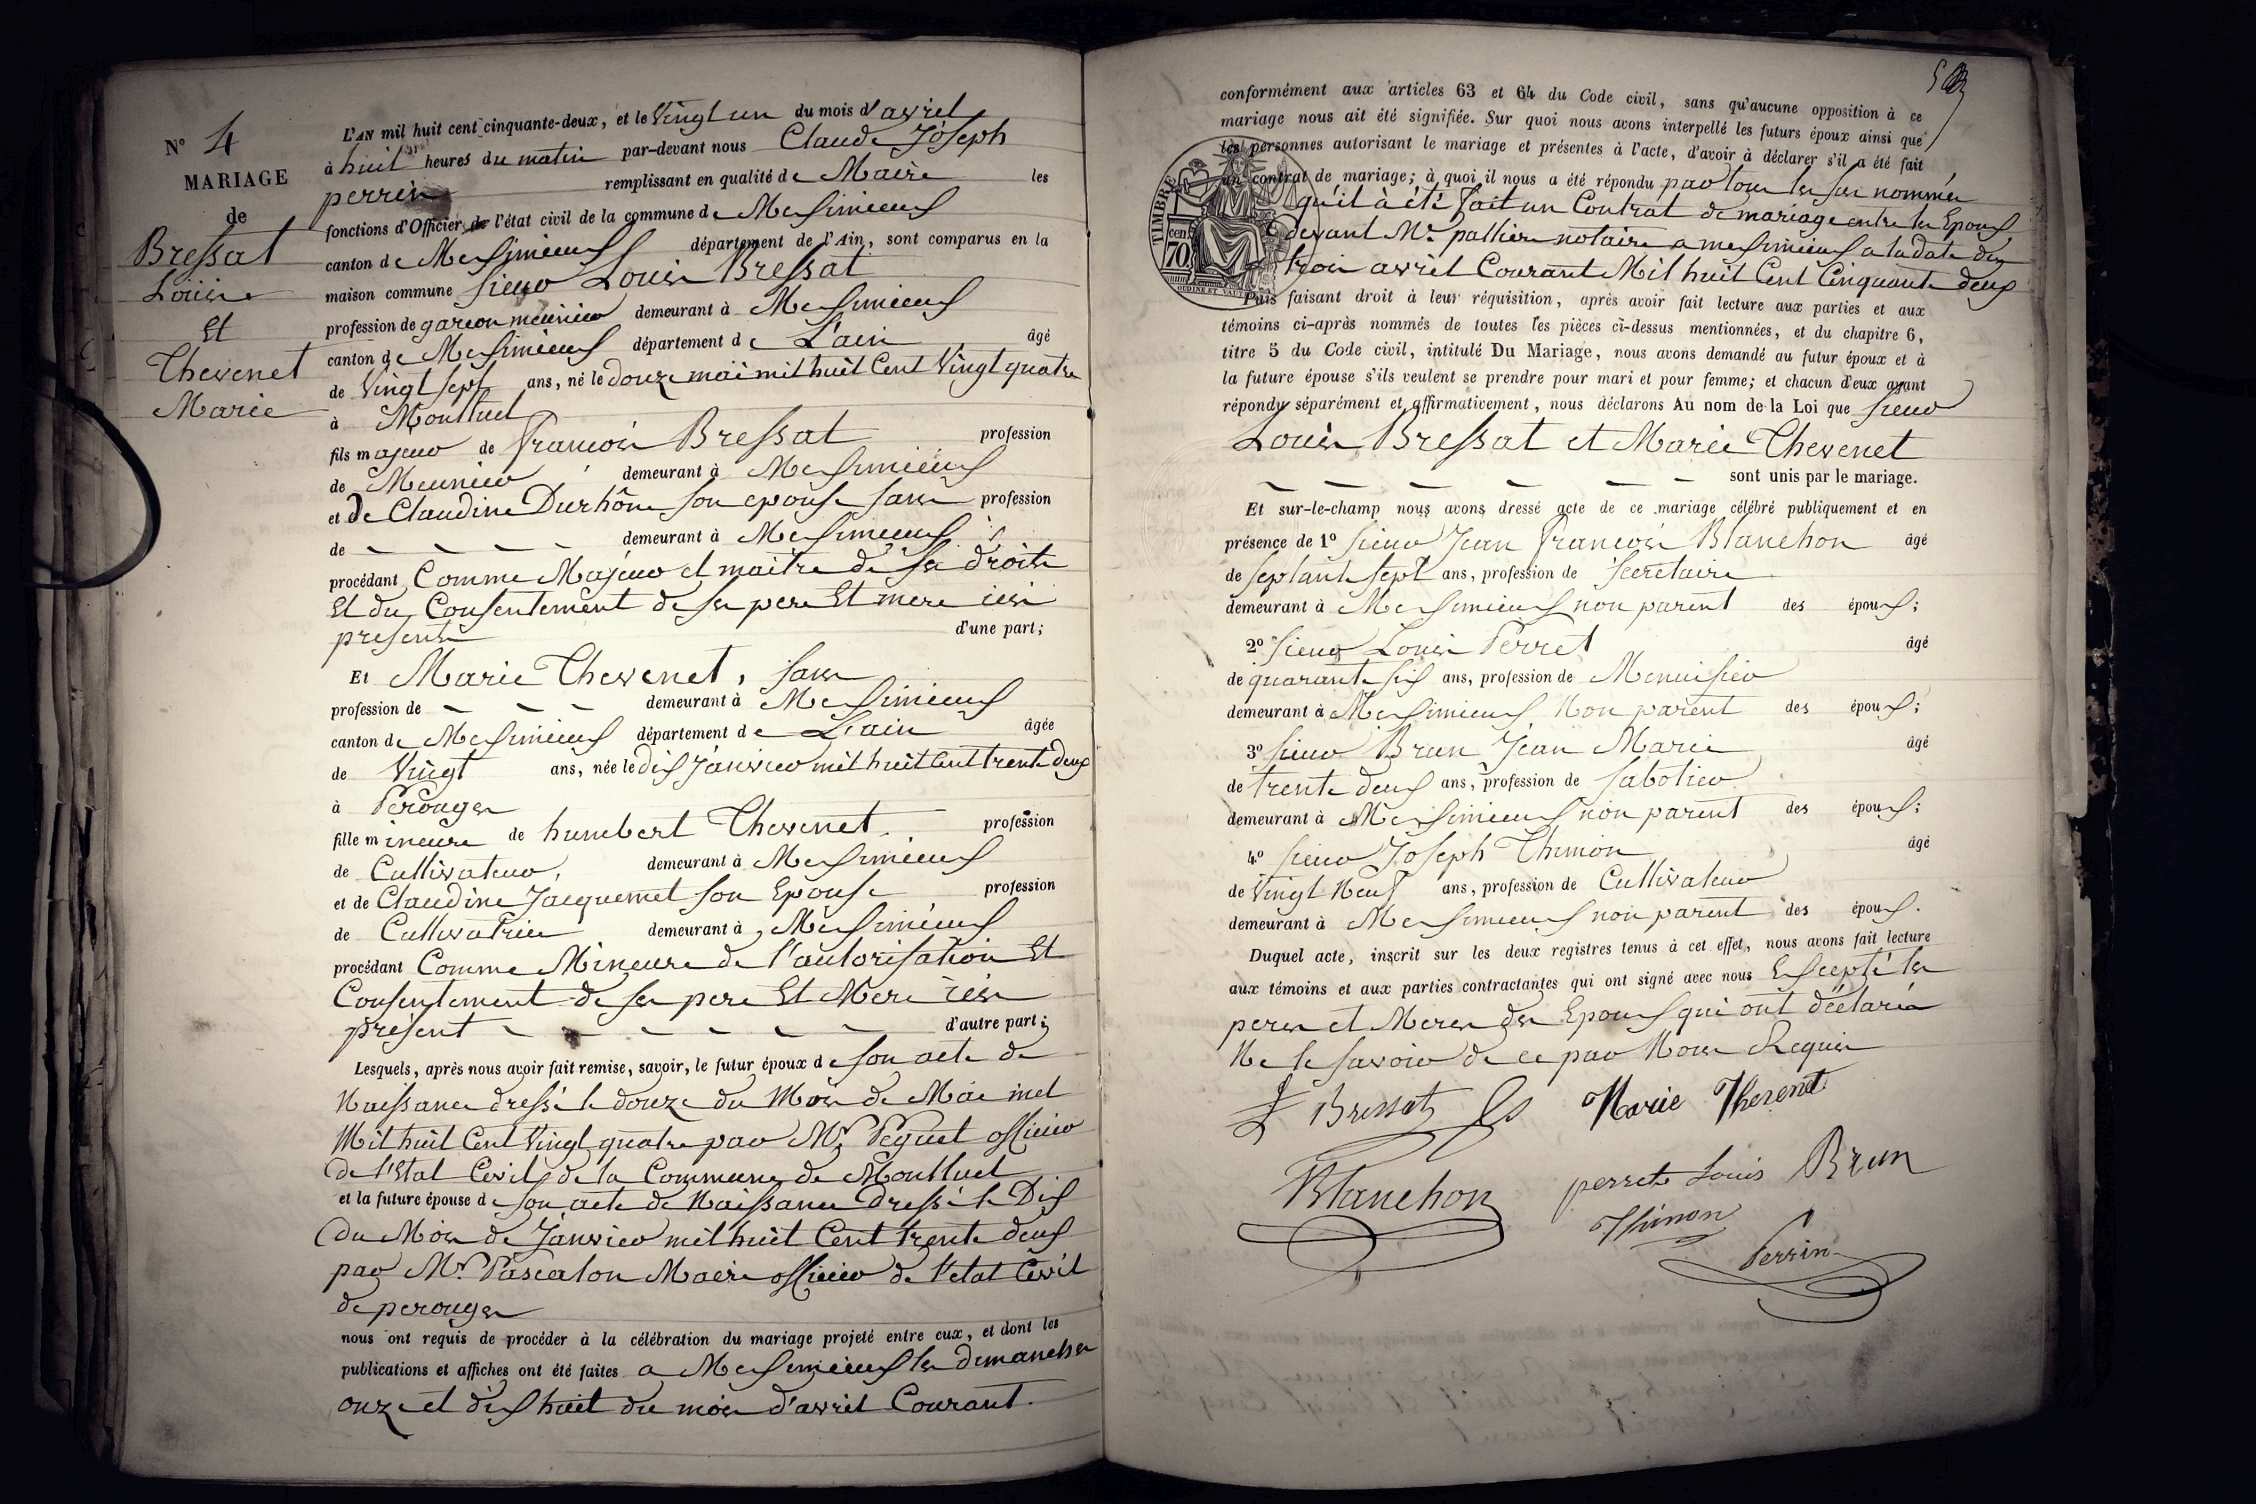 N° 4
MARIAGE
de
Bressat
Louis
Et
Thevenet
Marie
L'AN mil huit cent cinquante-deux, et le vingt un du mois d'avril
à huit heures du matin par-devant nous Claude Joseph
perrin remplissant en qualité de Maire les
fonctions d'Officier de l'état civil de la commune de Meximieux
canton de Meximieux département de l'Ain, sont comparus en la
maison commune sieur Louis Bressat
profession de garcon meunier demeurant à Meximieux
canton de Meximieux département de L'ain âgé
de Vingt sept ans, né le douze mai mil huit Cent Vingt quatre
à Montluel
fils majeur de françois Bressat profession
de Meunier demeurant à Meximieux
et de Claudine Durhône son epouse sans profession
de — — — — demeurant à Meximieux
procédant Comme Majeur et maitre de ses droits
Et du Consentement de ses pere Et mere ici
presents d'une part;
Et Marie Thevenet, sans
profession de — — — demeurant à Meximieux
canton de Meximieux département de L'ain âgée
de Vingt ans, née le dix Janvier mil huit Cent trente deux
à Perouges
fille mineure de humbert Thevenet profession
de Cultivateur, demeurant à Meximieux
et de Claudine Jacquemet son Epouse profession
de Cultivatrice demeurant à Meximieux
procédant Comme Mineure de l'autorisation Et
Consentement de ses pere Et Mere ici
présent — — — — — d'autre part;
Lesquels, après nous avoir fait remise, savoir, le futur époux de son acte de
Naissance dressé le douze du Mois de Mai mil
Mil huit Cent Vingt quatre par Mr Peguet officier
de l'Etat Civil de la Commune de Montluel
et la future épouse de son acte de Naissance dressé le Dix
du Mois de Janvier mil huit Cent trente deux
par Mr Pascalon Maire officier de l'etat Civil
de perouges
nous ont requis de procéder à la célébration du mariage projeté entre eux, et dont les
publications et affiches ont été faites a Meximieux les dimanches
onze et dix huit du mois d'avril Courant.
conformément aux articles 63 et 64 du Code civil, sans qu'aucune opposition à ce
mariage nous ait été signifiée. Sur quoi nous avons interpellé les futurs époux ainsi que
les personnes autorisant le mariage et présentes à l'acte, d'avoir à déclarer s'il a été fait
un contrat de mariage; à quoi il nous a été répondu par tous les sus nommés
qu'il à été fait un Contrat de mariage entre les Epoux
devant Me pallier notaire a meximieux a la date du
trois avril Courant Mil huit Cent Cinquante deux
TIMBRE
70 cen.
Puis faisant droit à leur réquisition, après avoir fait lecture aux parties et aux
témoins ci-après nommés de toutes les pièces ci-dessus mentionnées, et du chapitre 6,
titre 5 du Code civil, intitulé Du Mariage, nous avons demandé au futur époux et à
la future épouse s'ils veulent se prendre pour mari et pour femme; et chacun d'eux ayant
répondu séparément et affirmativement, nous déclarons Au nom de la Loi que sieur
Louis Bressat et Marie Thevenet
— — — — — — sont unis par le mariage.
Et sur-le-champ nous avons dressé acte de ce mariage célébré publiquement et en
présence de 1° sieur Jean françois Blanchon âgé
de septante sept ans, profession de Secretaire
demeurant à Meximieux non parent des époux;
2° sieur Louis Perret âgé
de quarante six ans, profession de Menuisier
demeurant à Meximieux Non parent des époux;
3° sieur Brun Jean Marie âgé
de trente deux ans, profession de sabotier
demeurant à Meximieux non parent des époux;
4° sieur Joseph Thimon âgé
de Vingt Neuf ans, profession de Cultivateur
demeurant à Meximieux non parent des époux.
Duquel acte, inscrit sur les deux registres tenus à cet effet, nous avons fait lecture
aux témoins et aux parties contractantes qui ont signé avec nous Excepté les
peres et Meres des Epoux qui ont déclarés
Ne le savoir de ce par Nous Requis
L Bressat Marie Thevenet
Blanchon perret Louis Brun
Thimon
Perrin